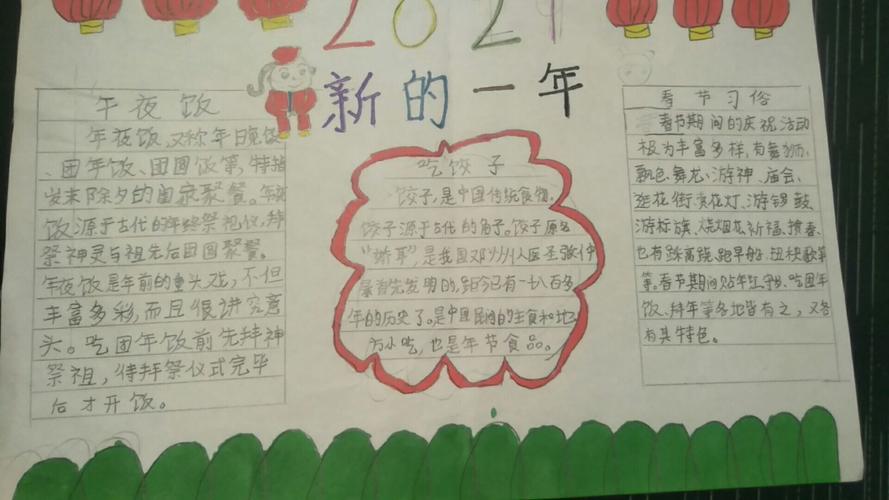 2021
新的一年
午夜饭
年夜饭,又称年日晚饭
、团年饭、团圆饭等,特指
岁末除夕的阖家聚餐。年夜
饭源于古代的年终祭祀仪,拜
祭神灵与祖先后团圆聚餐。
年夜饭是年前的重头戏,不但
丰富多彩,而且很讲究意
头。吃团年饭前先拜神
祭祖,待拜祭仪式完毕
后才开饭。
吃饺子
饺子,是中国传统食物,
饺子源于古代的角子。饺子原名
"娇耳",是我国邓州人医圣张仲
景首先发明的,距今已有一千八百多
年的历史了。是中国民间的主食和地
方小吃,也是年节食品。
春节习俗
春节期间的庆祝活动
极为丰富多样,有舞狮、
飘色、舞龙、游神、庙会、
逛花街、赏花灯、游锣鼓、
游标旗、烧烟花、祈福、掼春、
也有踩高跷、跑旱船、扭秧歌等
等。春节期间贴年红、守岁、吃团年
饭、拜年等各地皆有之,又各
有其特色。